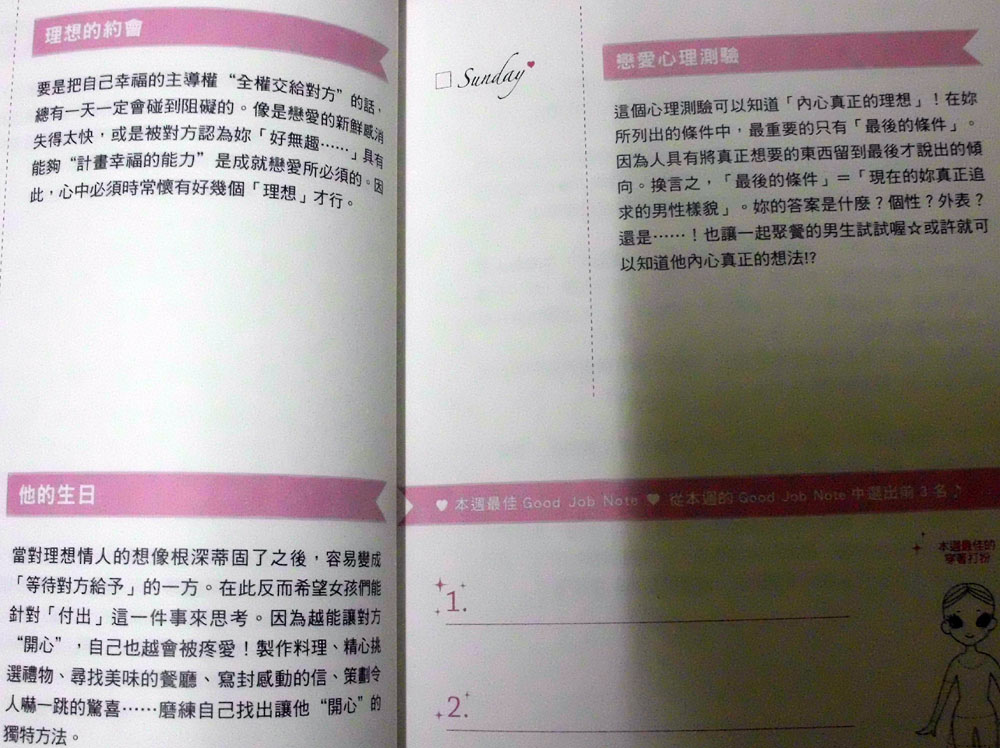 理想的約會
要是把自己幸福的主導權“全權交給對方”的話，
總有一天一定會碰到阻礙的。像是戀愛的新鮮感消
失得太快，或是被對方認為妳「好無趣……」具有
能夠“計畫幸福的能力”是成就戀愛所必須的。因
此，心中必須時常懷有好幾個「理想」才行。
他的生日
當對理想情人的想像根深蒂固了之後，容易變成
「等待對方給予」的一方。在此反而希望女孩們能
針對「付出」這一件事來思考。因為越能讓對方
“開心”，自己也越會被疼愛！製作料理、精心挑
選禮物、尋找美味的餐廳、寫封感動的信、策劃令
人嚇一跳的驚喜……磨練自己找出讓他“開心”的
獨特方法。
Sunday
戀愛心理測驗
這個心理測驗可以知道「內心真正的理想」！在妳
所列出的條件中，最重要的只有「最後的條件」。
因為人具有將真正想要的東西留到最後才說出的傾
向。換言之，「最後的條件」＝「現在的妳真正追
求的男性樣貌」。妳的答案是什麼？個性？外表？
還是……！也讓一起聚餐的男生試試喔☆或許就可
以知道他內心真正的想法!?
♥ 本週最佳 Good Job Note ♥ 從本週的 Good Job Note 中選出前 3 名♪
本週最佳的
穿著打扮
1.
2.